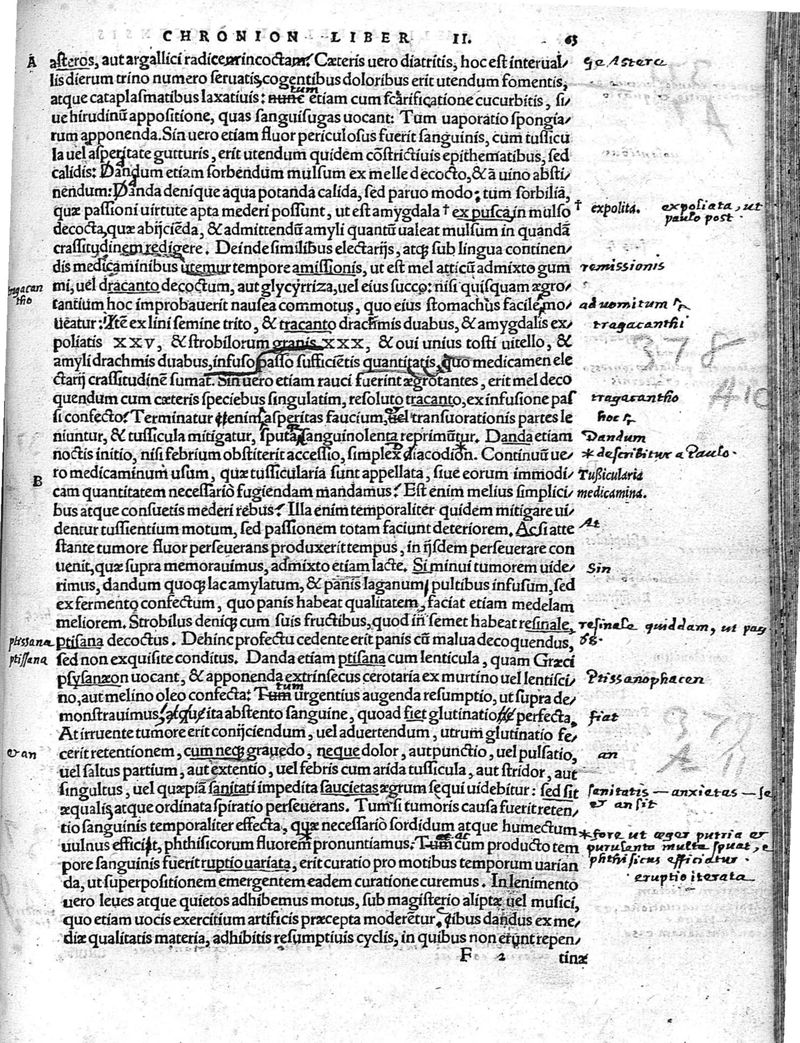 CHRONION LIBER II. 63
A asteros, aut argallici radice incoctam. Cæteris uero diatritis, hoc est interual/ Geastera
lis dierum trino numero seruatis, cogentibus doloribus erit utendum fomentis,
atque cataplasmatibus laxatiuis: nunc tum etiam cum scarificatione cucurbitis, si/
ue hirudinū appositione, quas sanguisugas uocant: Tum uaporatio spongia/
rum apponenda. Sin uero etiam fluor periculosus fuerit sanguinis, cum tussicu
la uel asperitate gutturis, erit utendum quidem cōstrictiuis epithematibus, sed
calidis: Dandum etiam sorbendum mulsum ex melle decocto, & ā uino absti/
nendum: Danda denique aqua potanda calida, sed paruo modo: tum sorbilia,
quæ passioni uirtute apta mederi possunt, ut est amygdala † ex pusca, in mulso † expolita. expoliata, ut paulo post.
decocta, quæ abijciēda, & admittendū amyli quantū ualeat mulsum in quandā
crassitudinem redigere. Deinde similibus electarijs, atq; sub lingua continen/
dis medicaminibus utemur tempore amissionis, ut est mel atticū admixto gum remissionis
mi, uel dracanto decoctum, aut glycyrriza, uel eius succo: nisi quisquam ægro/
tantium hoc improbauerit nausea commotus, quo eius stomachus facile mo/ ad uomitum
ueatur: Itē ex lini semine trito, & tracanto drachmis duabus, & amygdalis ex/ tragacanthi
poliatis XXV, & strobilorum granis XXX, & oui unius tosti uitello, &
amyli drachmis duabus, infuso passo sufficiētis quantitatis, quo medicamen ele 378
ctarij crassitudinē sumat. Sin uero etiam rauci fuerint ægrotantes, erit mel deco A10
quendum cum cæteris speciebus singulatim, resoluto tracanto, ex infusione pas tragacantho
si confecto. Terminatur etenim asperitas faucium, uel transuorationis partes le hoc
niuntur, & tussicula mitigatur, sputa sanguinolenta reprimūtur. Danda etiam Dandum
noctis initio, nisi febrium obstiterit accessio, simplex diacodion. Continuū ue/ * describitur a Paulo.
B ro medicaminum usum, quæ tussicularia sunt appellata, siue eorum immodi/ Tußicularia
cam quantitatem necessariò fugiendam mandamus: Est enim melius simplici medicamina.
bus atque consuetis mederi rebus: Illa enim temporaliter quidem mitigare ui/
dentur tussientium motum, sed passionem totam faciunt deteriorem. Ac si atte At
stante tumore fluor perseuerans produxerit tempus, in ijsdem perseuerare con
uenit, quæ supra memorauimus, admixto etiam lacte. Si minui tumorem uide/ Sin
rimus, dandum quoq; lac amylatum, & panis laganum, pultibus infusum, sed
ex fermento confectum, quo panis habeat qualitatem, faciat etiam medelam
meliorem. Strobilus deniq; cum suis fructibus, quod in semet habeat resinale, resinale quiddam, ut pag
ptissana ptisana decoctus. Dehinc profectu cedente erit panis cū malua decoquendus, 68.
ptissana sed non exquisite conditus. Danda etiam ptisana cum lenticula, quam Græci
psysanæon uocant, & apponenda extrinsecus cerotaria ex murtino uel lentisci/ Ptissanophacen
no, aut melino oleo confecta: Tum tum urgentius augenda resumptio, ut supra de/
monstrauimus: atque ita abstento sanguine, quoad fiet glutinatio perfecta, fiat
At irruente tumore erit conijciendum, uel aduertendum, utrum glutinatio fe/ 379
cerit retentionem, cum neq; grauedo, neque dolor, aut punctio, uel pulsatio, an A 11
uel saltus partium, aut extentio, uel febris cum arida tussicula, aut stridor, aut
singultus, uel quæpiā sanitati impedita saucietas ægrum sequi uidebitur: sed sit sanitatis — anxietas — se
æqualis atque ordinata spiratio perseuerans. Tum si tumoris causa fuerit reten/ er an sit
tio sanguinis temporaliter effecta, quæ necessariò sordidum atque humectum
uulnus efficiat, phthisicorum fluorem pronuntiamus: Tum cum producto tem *fore ut æger putria et purulenta multa spuat, e
pore sanguinis fuerit ruptio uariata, erit curatio pro motibus temporum uarian phthisicus efficiatur.
da, ut superpositionem emergentem eadem curatione curemus. In lenimento eruptio iterata
uero leues atque quietos adhibemus motus, sub magisterio aliptæ uel musici,
quo etiam uocis exercitium artificis præcepta moderētur. Cibus dandus ex me/
diæ qualitatis materia, adhibitis resumptiuis cyclis, in quibus non erunt repen/
F 2 tinæ